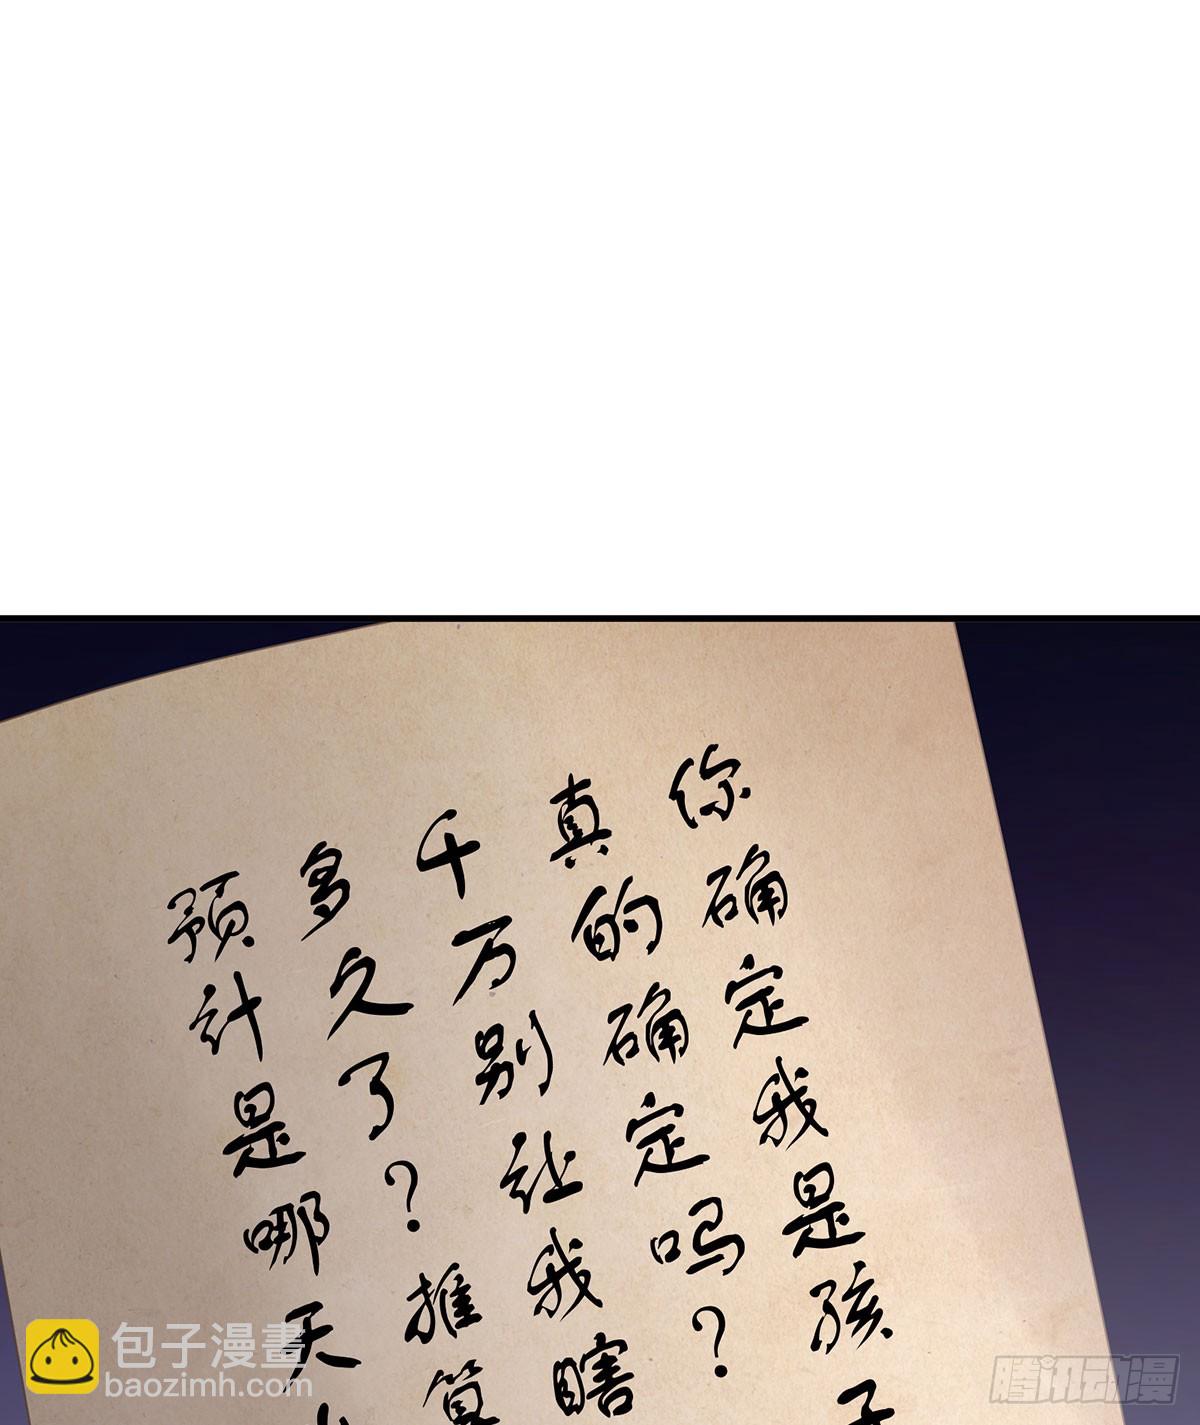 你确定我是孩子
真的确定吗？
千万别让我瞎
多久了？推算
预计是哪天
包子漫畫
baozimh.com
腾讯动漫